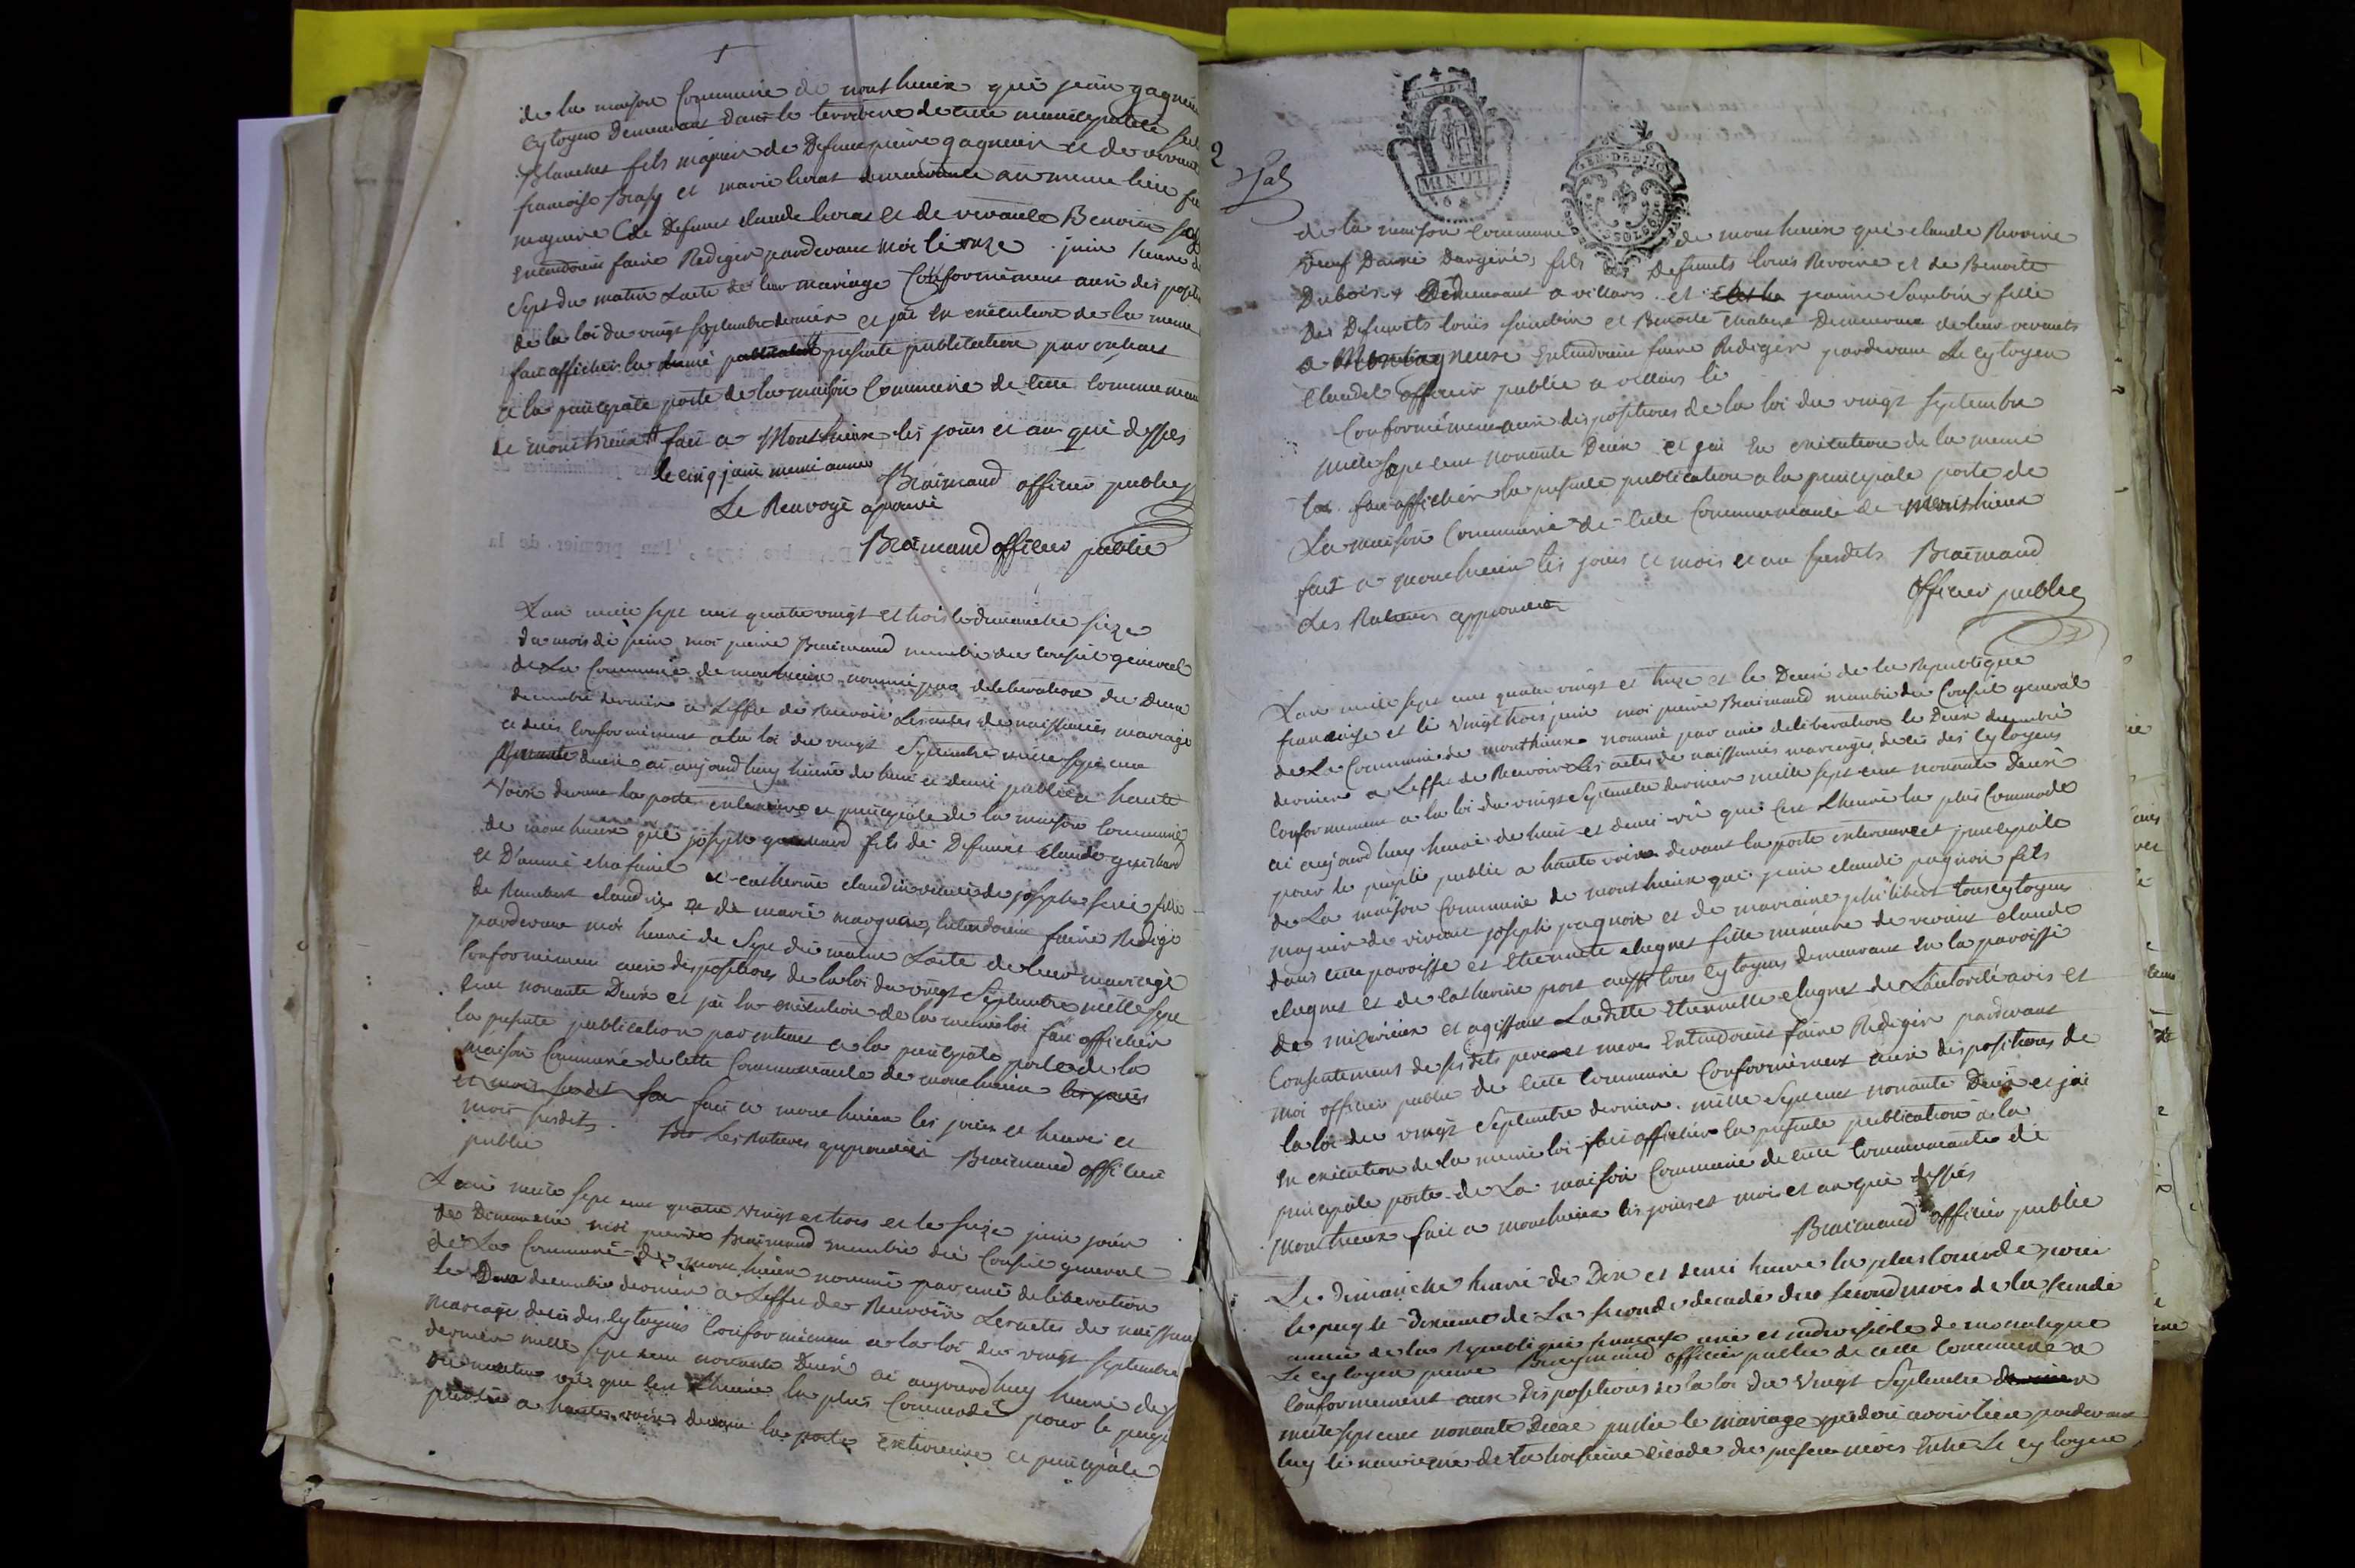 de la maison Commune de monthieux que jean gagneur
Cytoyen Demeurant dans le territoire de cette municipalité
Blanchet fils majeur de Defunt pierre gagneur et de vivante
francoise Brasy et marie livrat demeurante au meme lieu
majeure de Defunt claude livrat et de vivante Benoite
Entendoient faire Rediger pardevant moi le onze juin heure de
Sept du matin Lacte de leur mariage Conformément aux dispositi
de la loi du vingt septembre dernier et jai En exécution de la meme
fait afficher la presente publication par extrait
a la principale porte de la maison Commune de cette Communauté
de monthieux fait a Monthieux les jours et an que dessus
le cinq juin meme année Braimand officier public
Le Renvoye aprouvé
Braimand officier public
Lan mille sept cent quatre vingt et trois le dimanche seize
du mois de juin moi pierre Braimand membre du Conseil général
de La Commune de monthieux nommé par deliberation du Deux
decembre dernier a Leffet de Recevoir Les actes de naissances mariage
et décès Conformément a la loi du vingt Septembre mille sept cent
nonante deux ai aujourdhuy heure de huit et demi publié a haute
Voix devant la porte exterieure et principale de la maison Commune
de monthieux que joseph guichard fils de Defunt Claude guichard
et D'anne chafanel et catherine claudin veuve de joseph ferré fille
de Rambert claudin et de marie marguin, Entendoient faire Redige
pardevant moi heure de Sept du matin Lacte de leur mariage
Conformément aux dispositions de la loi du vingt Septembre mille sept
cent nonante Deux et jai En exécution de la meme loi fait afficher
la presente publication par extrait a la principale porte de la
maison Commune de cette Communauté de monthieux les jours
et mois susdit fait a monthieux les jours et heure et
mois susdits. Les Ratures approuvées Braimand officier
public
Lan mille sept cent quatre vingt et trois et le seize juin jour
de Dimanche moi pierre Braimand membre du Conseil general
de La Commune de monthieux nommé par une deliberation
le Deux decembre dernier a Leffet de Recevoir Les actes de naissan
mariage decès des Cytoyens Conformément a la loi du vingt septembre
dernier mille sept cent nonante Deux ai aujourdhuy heure de
du matin vû que cest Lheure la plus Commode pour le peup
publié a haute voix devant la porte Extérieure et principale
2
de la maison Commune de monthieux que claude Revoire
Veuf Danne Dangere, fils de Defunts louis Revoire et de Benoite
Dubois, Demeurant a villars et jeanne Sambin, fille
Des Defunts louis Sambin et Benoite Demeurant de leur vivants
a Montagneux Entendoient faire Rediger pardevant Le Cytoyen
Claudel officier public a villars le
Conformément aux dispositions de la loi du vingt Septembre
mille sept cent nonante Deux et jai En exécution de la meme
loi fait afficher la presente publication a la principale porte de
La maison Commune de cette Communauté de monthieux
fait a monthieux les jours et mois et an susdits Braimand
Les Ratures approuvées officier public
Lan mille sept cent quatre vingt et treize et le Deux de la Republique
francaise et le Vingt trois juin moi pierre Braimand membre du Conseil general
de La Commune de monthieux nommé par une deliberation le Deux decembre
dernier a Leffet de Recevoir Les actes de naissances mariages, decès des Cytoyens
Conformement a la loi du vingt Septembre dernier mille sept cent nonante Deux
ai aujourdhuy heure de huit et demi vû que cest Lheure la plus Commode
pour le peuple publié a haute voix devant la porte exterieure et principale
de La maison Commune de monthieux que jean claude pagnon fils
majeur de vivant joseph pagnon et de mariaine philibert tous cytoyens
dans cette paroisse et Etiennette clugnet fille mineure de vivant claude
clugnet et de catherine post aussi tous Cytoyens demeurant En la paroisse
de mizerieux et agissant Ladite Etiennette clugnet de Lautorité avis et
Consentement de sesdits pere et mere Entendoient faire Rediger pardevant
moi officier public de cette Commune Conformément aux dispositions de
la loi du vingt Septembre dernier mille Sept cent nonante Deux et jai
En exécution de la meme loi fait afficher la presente publication a la
principale porte de La maison Commune de cette Communauté de
monthieux fait a monthieux les jours et mois et an que dessus
Braimand officier public
Le Dimanche heure de Dix et demi heure la plus Comode pour
le peuple dixieme de La seconde decade du second mois de la seconde
année de la Republique francaise une et indivisible de monalogue
Le cytoyen pierre Braymand officier public de cette Commune a
Conformement aux dispositions de la loi du vingt Septembre dernier
mille sept cent nonante Deux publie le mariage qui doit avoir lieu pardevant
luy le neuvieme de la troisieme décade du present mois Entre Le cytoyen